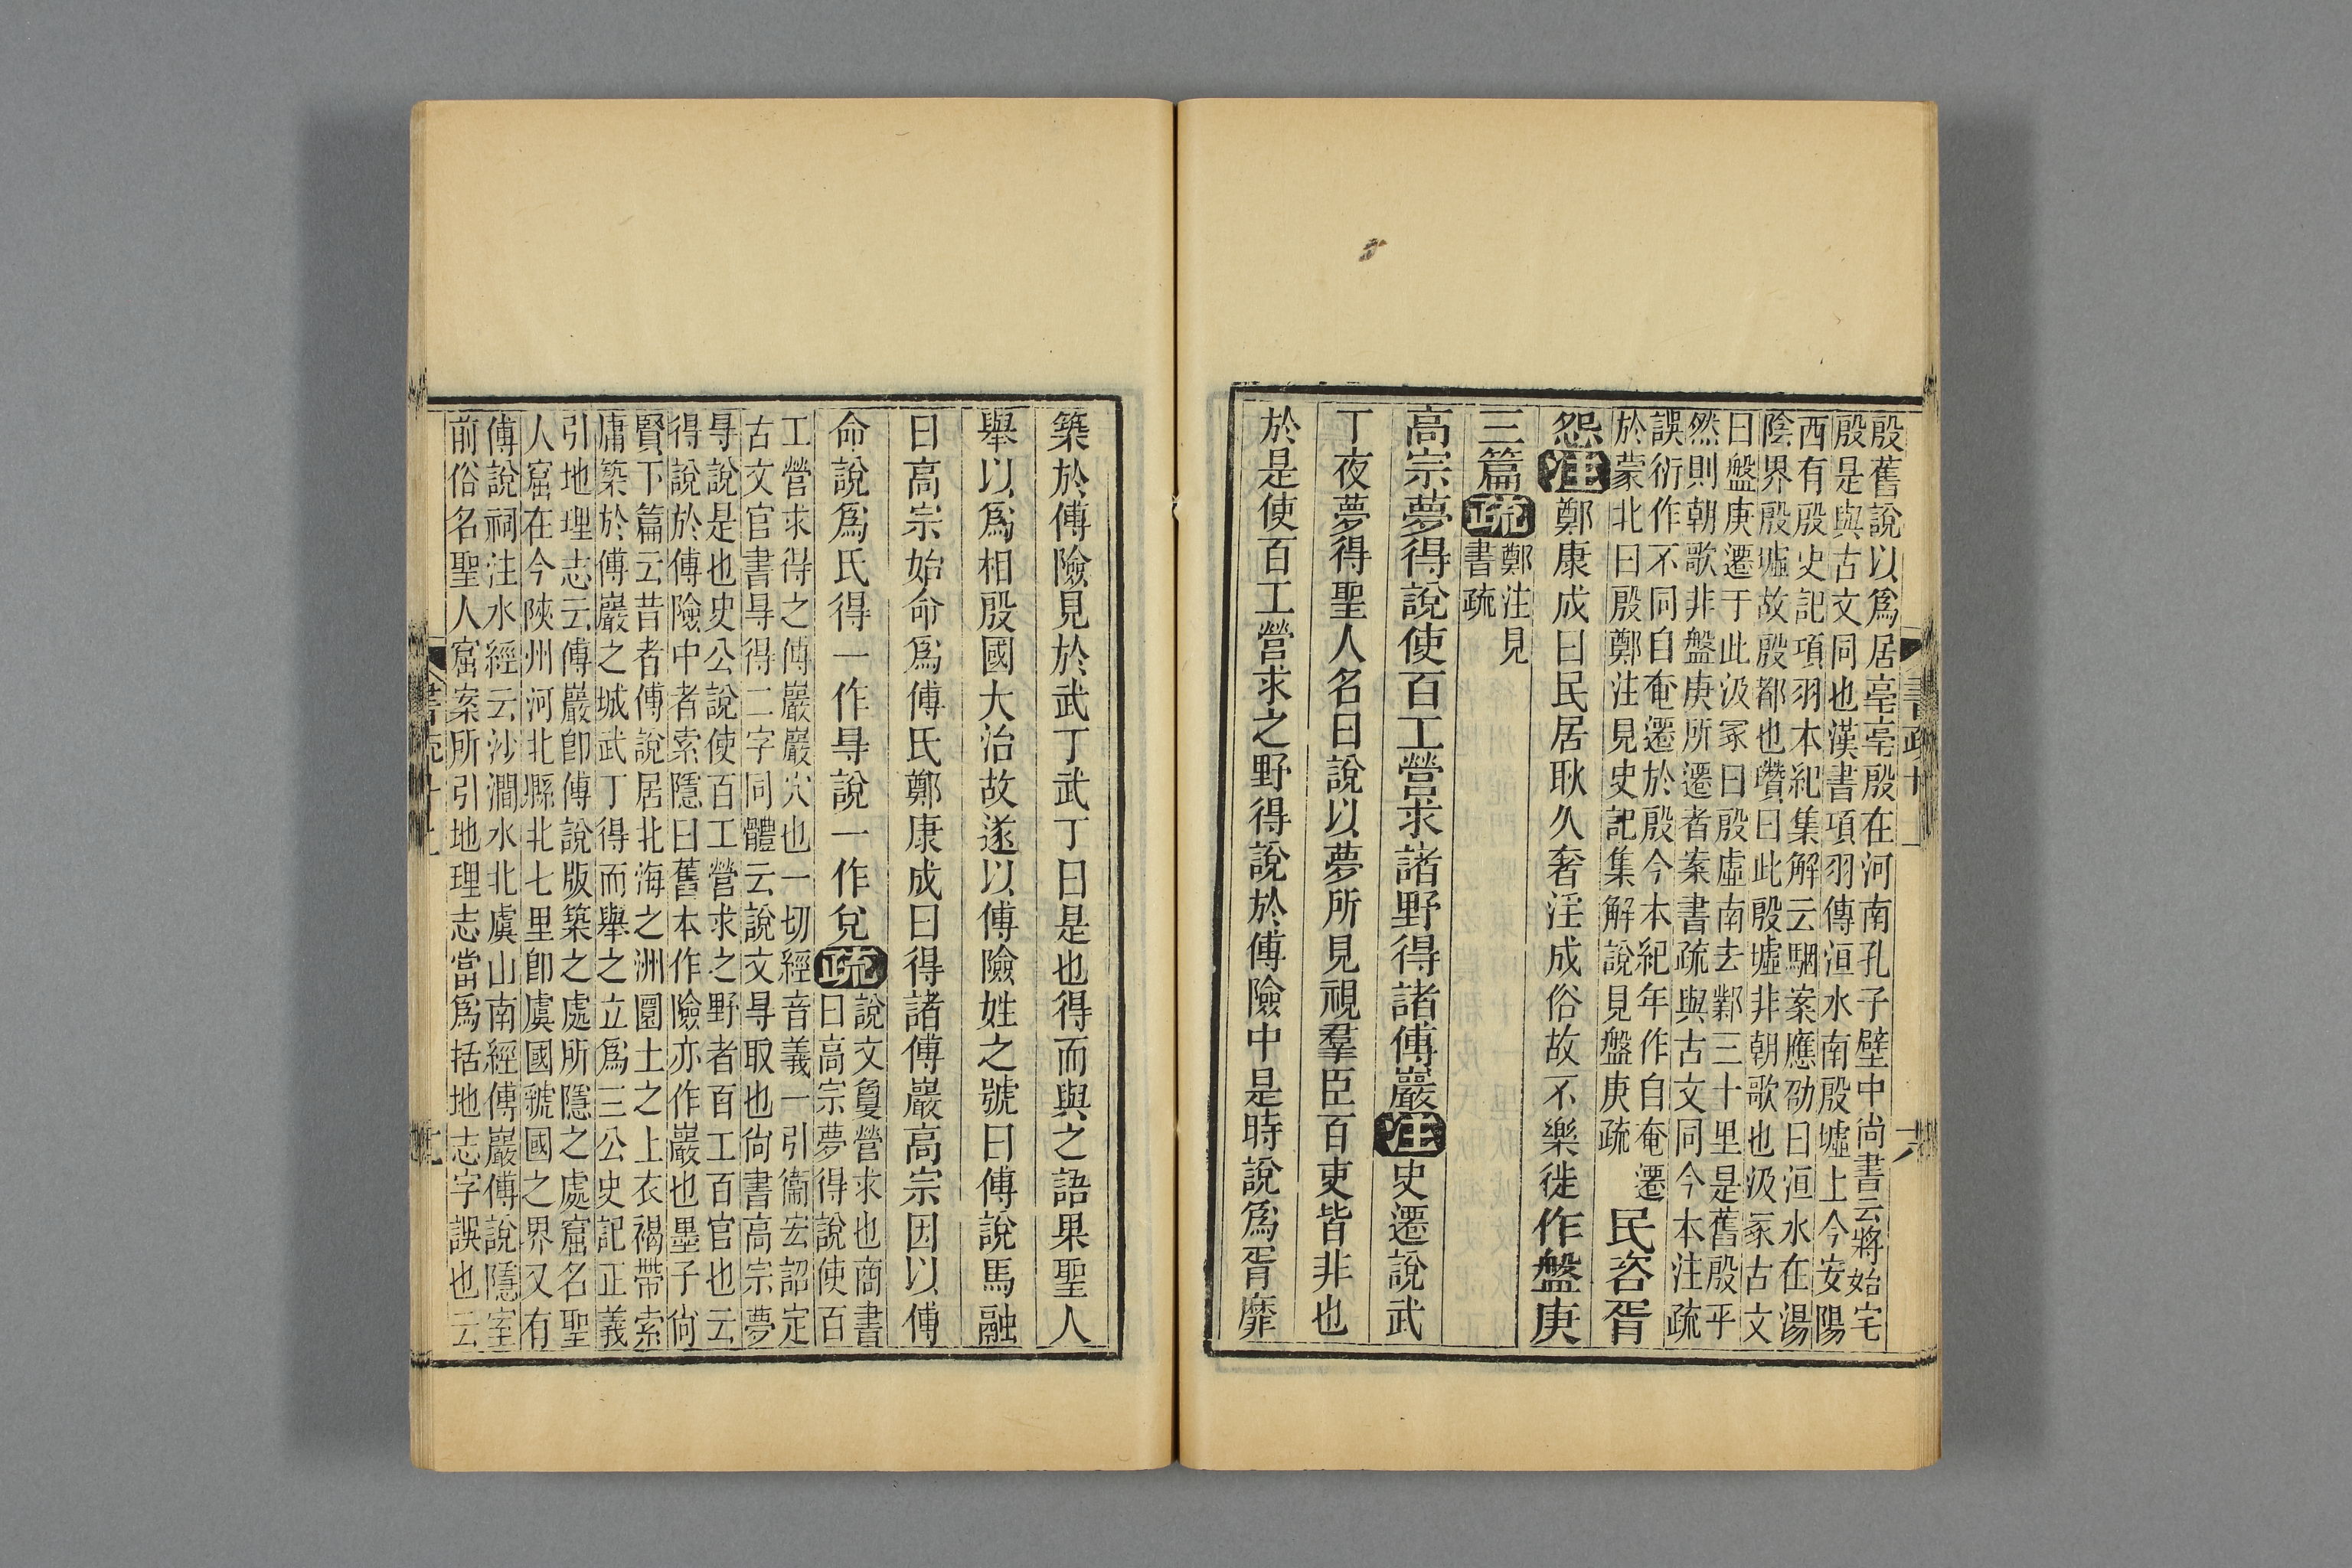 殷舊說以爲居亳亳殷在河南孔子壁中尚書云將始宅
殷是與古文同也漢書項羽傳洹水南殷墟上今安陽
西有殷史記項羽本紀集解云駰案應劭曰洹水在湯
陰界殷墟故殷都也瓚曰此殷墟非朝歌也汲冢古文
曰盤庚遷于此汲冢曰殷虛南去鄴三十里是舊殷乎
然則朝歌非盤庚所遷者案書疏與古文同今本注疏
誤衍作不同自奄遷於殷今本紀年作自奄遷
於蒙北曰殷鄭注見史記集解說見盤庚疏
民咨胥
怨注鄭康成曰民居耿久奢淫成俗故不樂徙作盤庚
三篇疏鄭注見
書疏
高宗夢得說使百工營求諸野得諸傅巖注史遷說武
丁夜夢得聖人名曰說以夢所見視羣臣百吏皆非也
於是使百工營求之野得說於傅險中是時說爲胥靡
築於傅險見於武丁武丁曰是也得而與之語果聖人
舉以爲相殷國大治故遂以傅險姓之號曰傅說馬融
曰高宗始命爲傅氏鄭康成曰得諸傅巖高宗因以傅
命說爲氏得一作㝵說一作兌疏說文敻營求也商書
曰高宗夢得說使百
工營求得之傅巖巖穴也一切經音義一引衞宏詔定
古文官書㝵得二字同體云說文㝵取也尙書高宗夢
㝵說是也史公說使百工營求之野者百工百官也云
得說於傅險中者索隱曰舊本作險亦作巖也墨子尙
賢下篇云昔者傅說居北海之洲圜土之上衣褐帶索
庸築於傅巖之城武丁得而舉之立爲三公史記正義
引地理志云傅巖卽傅說版築之處所隱之處窟名聖
人窟在今陝州河北縣北七里卽虞國虢國之界又有
傅說祠注水經云沙澗水北虞山南經傅巖傅說隱室
前俗名聖人窟案所引地理志當爲括地志字誤也云